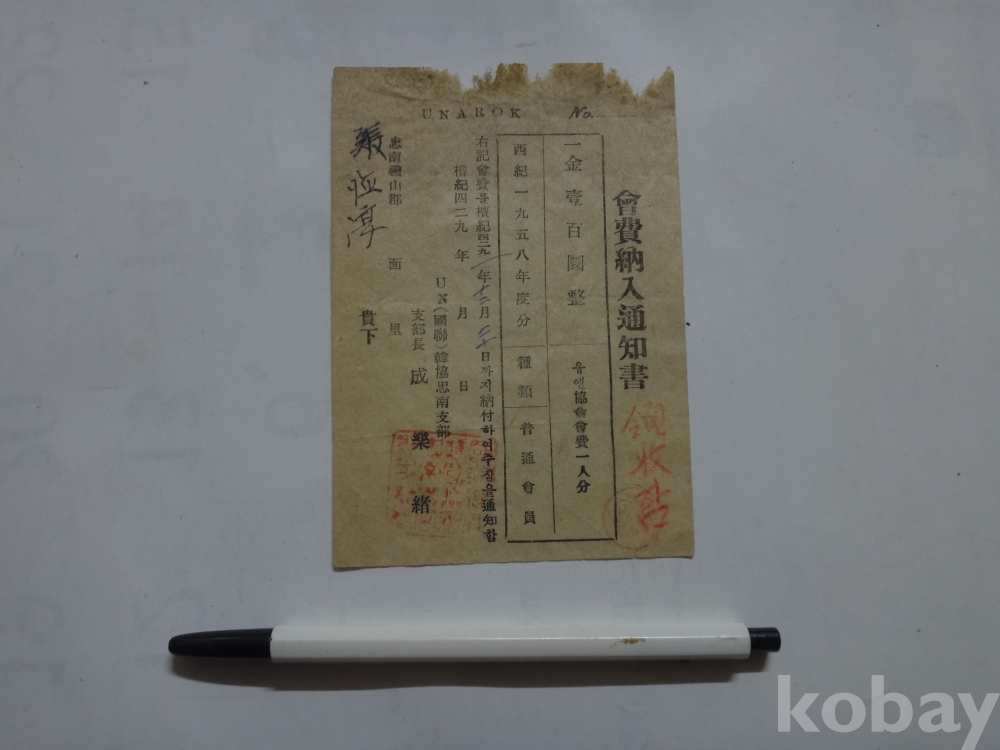 UNAROK No.
會費納入通知書
領收
一金壹百圜整
유엔協會會費一人分
西紀一九五八年度分
種類
普通會員
右記會費를檀紀四二九一年十二月 日까지納付하여주심을通知함
檀紀四二九 年 月 日
UN(國聯)韓協忠南支部
支部長 成樂緖
忠南禮山郡 面 里
張 淳 貴下
kobay